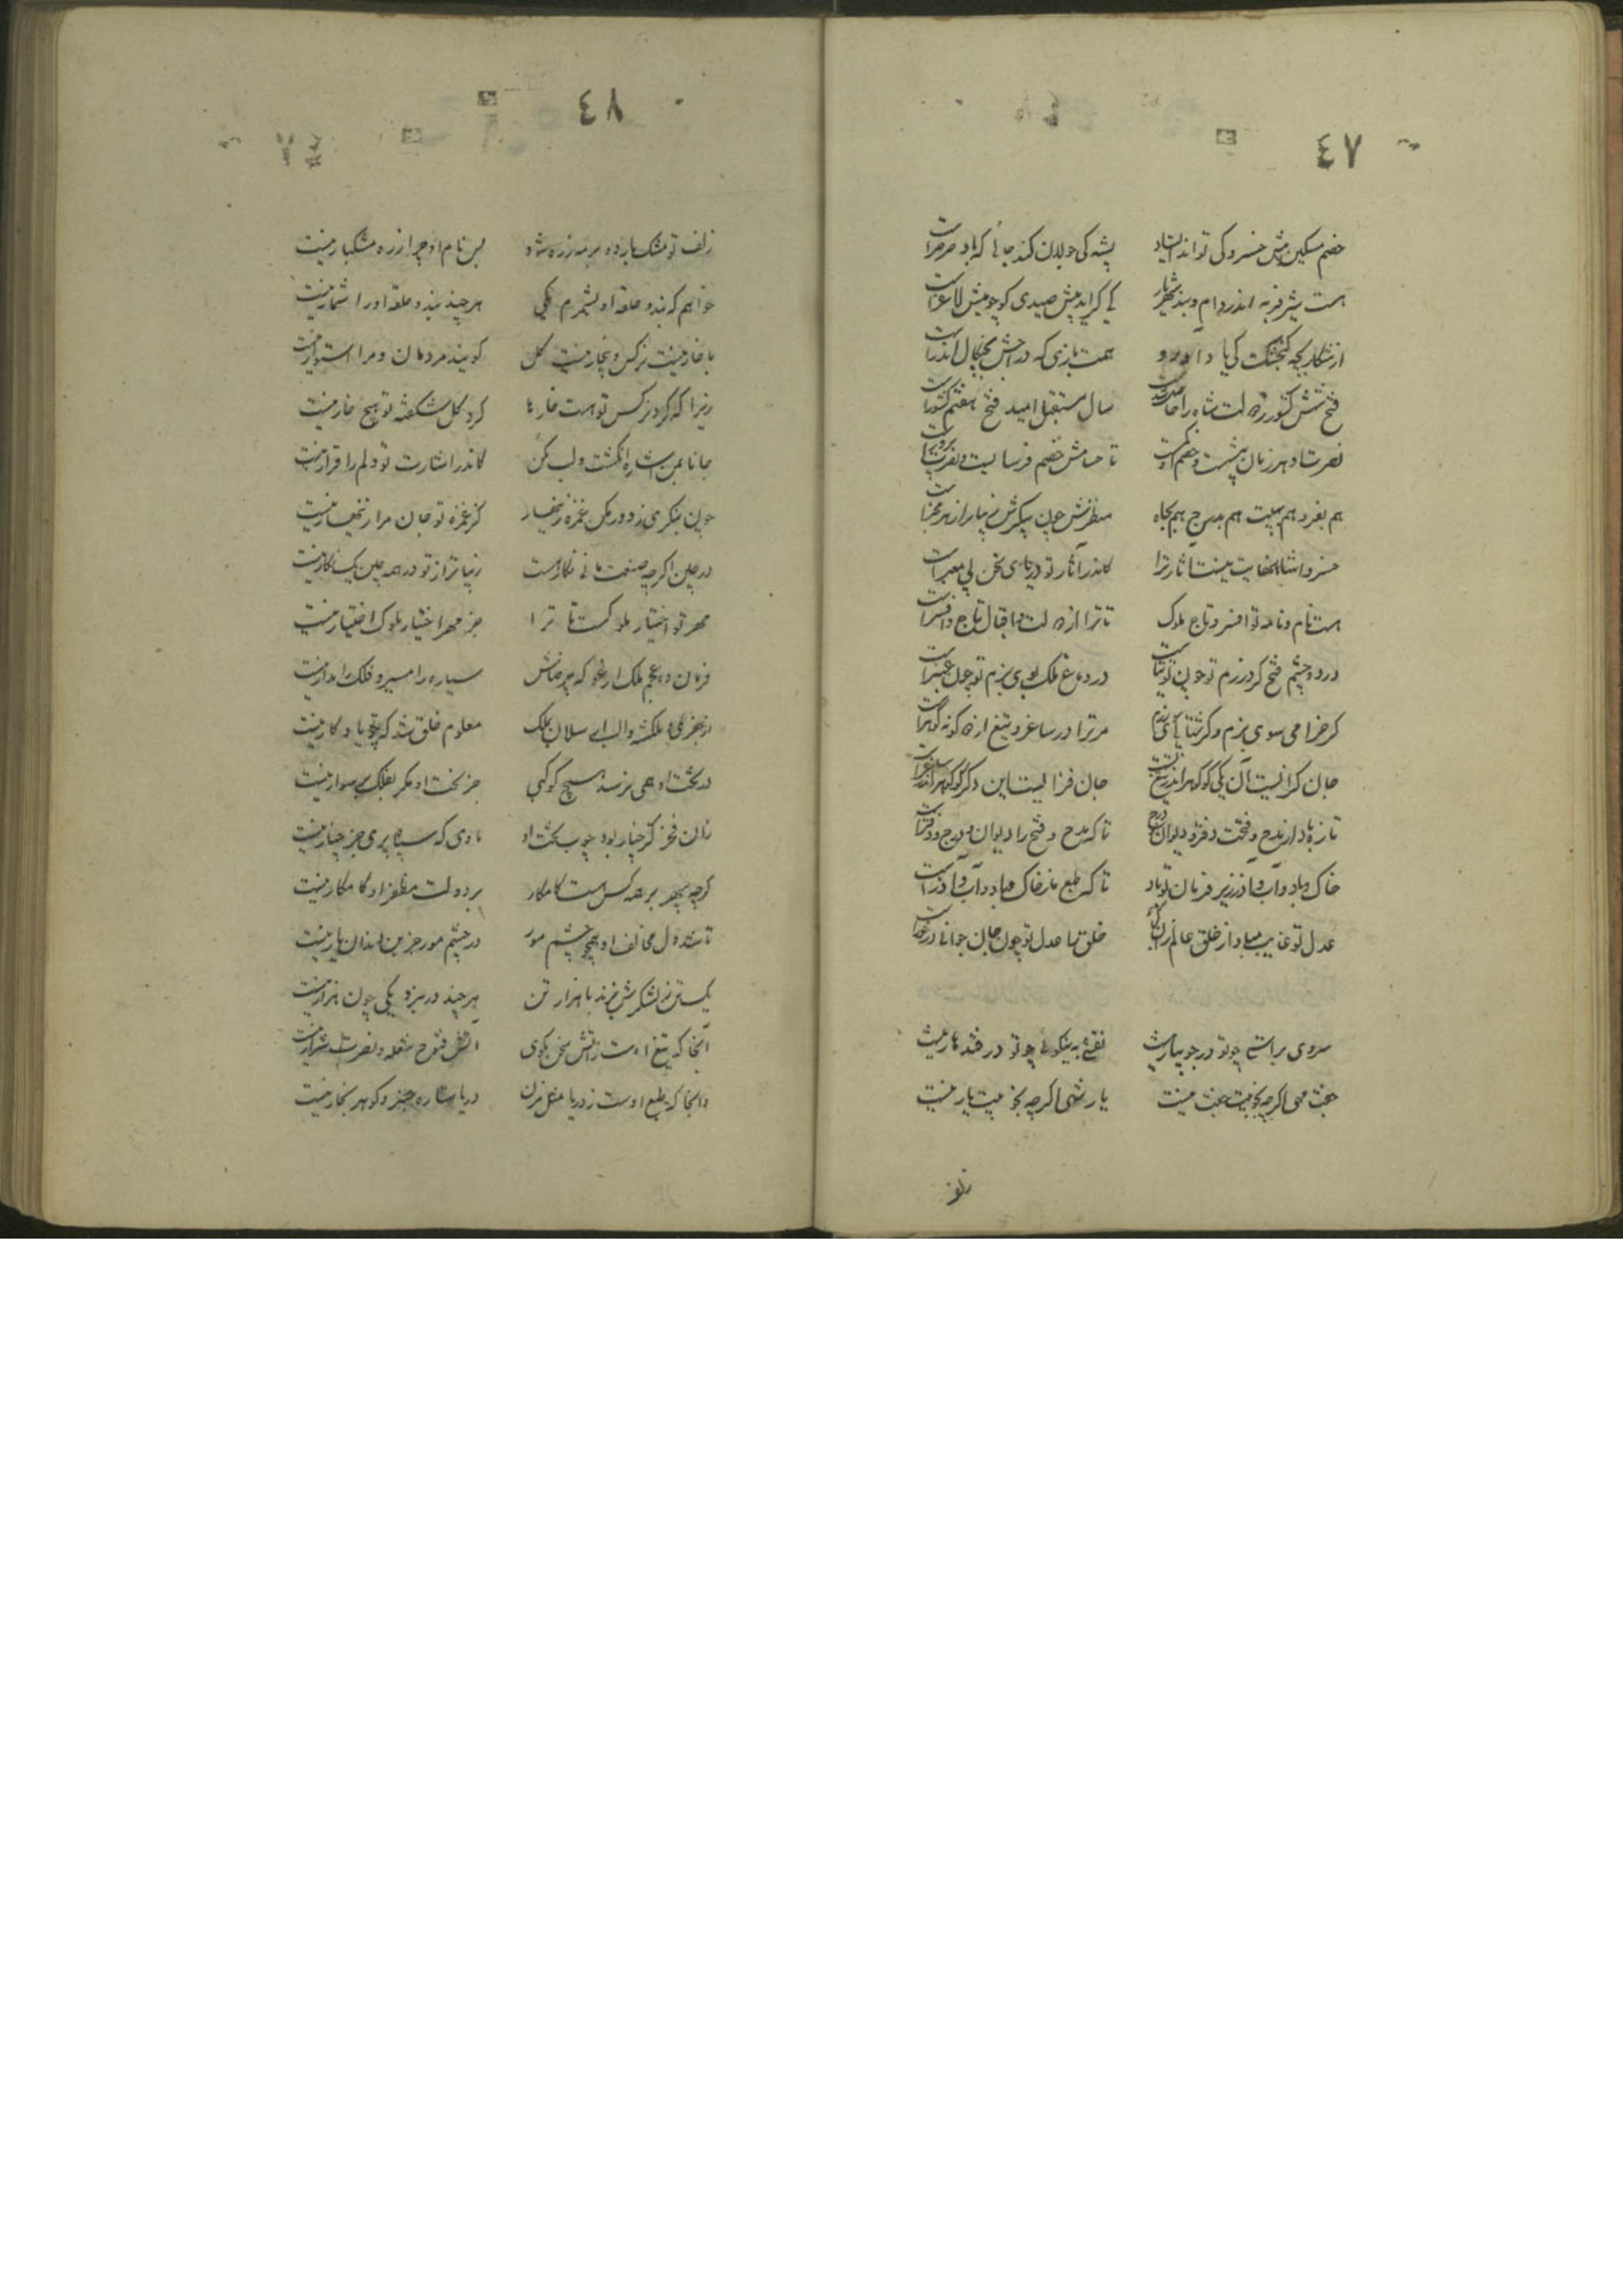 ٤٧
خصم مسکین پیش خسرو کی تواند ایستاد پشه کی جولان کند جائی که باد صرصرات
هست شیر فربه اندر دام و بند شهریار کی کراید پیش صیدی کو چو میش لاغرات
از شکار بچه کنجشک کی یاد آورد همت بازی که در چنگال
فتح شش کشور ز دولت شاه را حاصل شدت سال مستقبل امید فتح هفتم کشورات
نصرت او هر زمان بیشست و خصم او کمت تا حسامش خصم فرسایست و نصرت پرورات
هم بفر و هم بهیبت هم هم بجاه منظرش چون پیکرش زیباتر از هر مخبرات
خسروا شاها نهایت نیست آثار ترا کاندر آثار تو دریای سخن بی معبرات
هست نام و نامه تو افسر و تاج ملوک تا ترا از دولت و اقبال تاج و افسرات
در دو چشم فتح کرد رزم تو چون توتیات در دماغ ملک بوی بزم تو چون عنبرات
کر خرامی سوی بزم و کر شتابی سوی رزم مر ترا در ساغر و تیغ از دو کونه کوهرات
جان کزائیست آن یکی کو کوهر اندر تیغ تست جان فزائیست این دکر کو کوهر اندر ساغرات
تازه باد از مدح و فتحت دفتر و دیوان و درج تا که مدح و فتح را دیوان و درج و دفترات
خاک و باد و آب و آذر زیر فرمان تو باد تا که طبع ما ز خاک و باد و آب و آذرات
عدل تو غایب مباد از خلق عالم خلق را عدل تو چون جان جوانا درخورات
سروی براستی چو تو در جویبار نیست نقشی به نیکوئی چو تو در قندهار نیست
جفت مهی اکر چه بخوبیت جفت نیست یار شهی اکر چه بخوبیت یار نیست
زلف
٤٨
زلف تو مشک بارد و بر مه زره شود پس نام او چرا زره مشکبار نیست
خواهم که بند و حلقه او بشمرم یکی هر چند بند و حلقه او را شمار نیست
با خار نیست نرکس و بیخار نیست کل کویند مردمان و مرا استوار نیست
زیرا که کرد نرکس تو هست خارها کرد کل شکفته تو هیچ خار نیست
جانا بمن اشاره بانکشت و لب مکن کاندر اشارت تو دلم را قرار نیست
چون بنکری ز دور مکن غمزه زینهار کز غمزه تو جان مرا زینهار نیست
در چین اکر چه صنعت مانی نکارهاست زیباتر از تو در همه چین یک نکار نیست
مهر تو اختیار دلو کست تا ترا جز مهر اختیار ملوک اختیار نیست
فرمان ده عجم ملک ارغو که بر خاش سیاره را مسیر و فلک را مدار نیست
ملکشه والب ارسلان بملک معلوم خلق شد که چنو یادکار نیست
در بخت او همی نرسد هیچ کوکبی جز بخت او مکر بفلک بر سوار نیست
زان فخر کز چنار بود چوب تخت او مأوی که سپاه پری جز چنار نیست
کر چه سپهر بر همه کس هست کامکار بر دولت مظفر او کامکار نیست
تا شد دل مخالف او همچو چشم مور در چشم مور جز بن دندان مار نیست
یک تن ز لشکرش بزند با هزار تن هر چند در نبرد یکی چون هزار نیست
آنجا که تیغ اوست ز آتش سخن مکوی کاتش فتوح شعله و نصرت شرار نیست
وانجا که طبع اوست ز دریا مثل مزن دریا ستاره چیز و کوهر بخار نیست